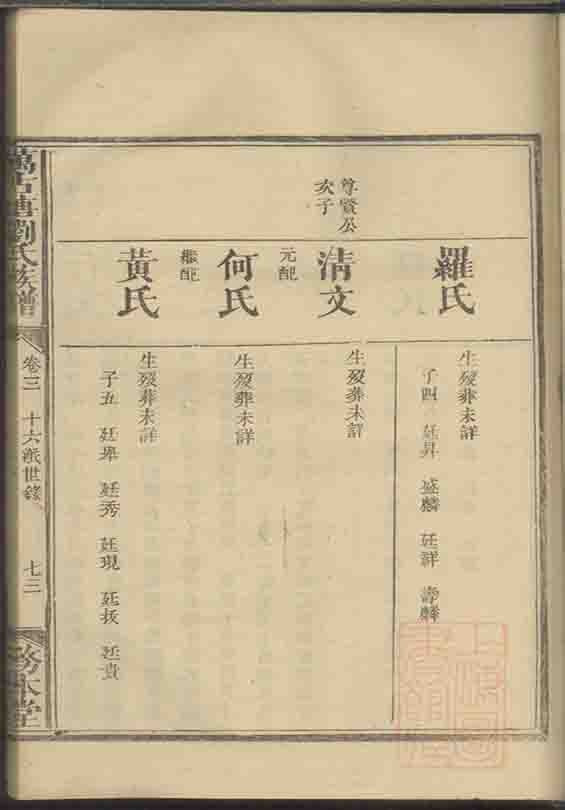 羅氏
生歿葬未詳
子四 廷昇 盛麟 廷詳 壽麟
尊賢公
次子
清文
生歿葬未詳
元配
何氏
生歿葬未詳
繼配
黃氏
生歿葬未詳
子五 廷舉 廷秀 廷現 廷拔 廷貴
劉氏族譜
卷三 十六派世錄 七三
務本堂
上海圖書館藏